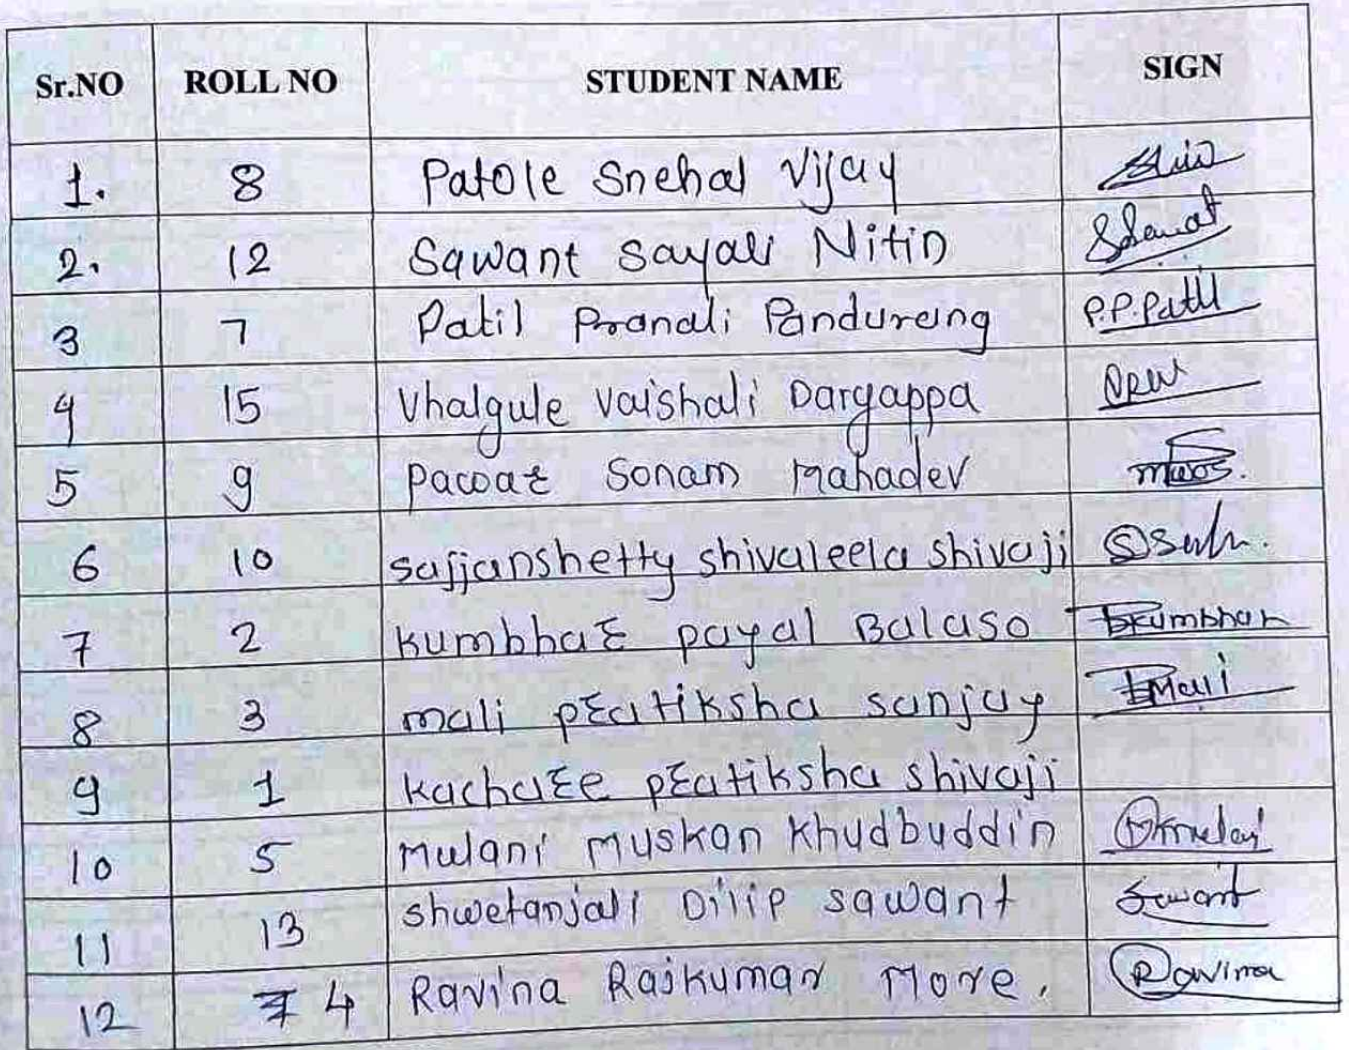 Sr.NO ROLL NO STUDENT NAME SIGN
1. 8 Patole Snehal Vijay
2. 12 Sawant Sayali Nitin Sawant
3 7 Patil Pranali Pandurang P.P.Patil
4 15 Vhalgule Vaishali Dargappa
5 9 Pawar Sonam Mahadev
6 10 Sajjanshetty Shivaleela Shivaji
7 2 Kumbhar Payal Balaso PKumbhar
8 3 mali Pratiksha Sanjay PMali
9 1 Kachare Pratiksha Shivaji
10 5 Mulani Muskan Khudbuddin
11 13 Shwetanjali Dilip Sawant Sawant
12 4 Ravina Rajkumar More. Ravina